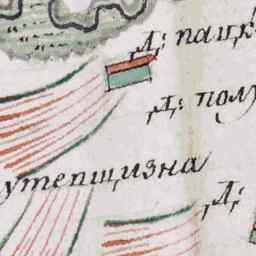 Д: пацк
Д: полу
утепщизна
Д: